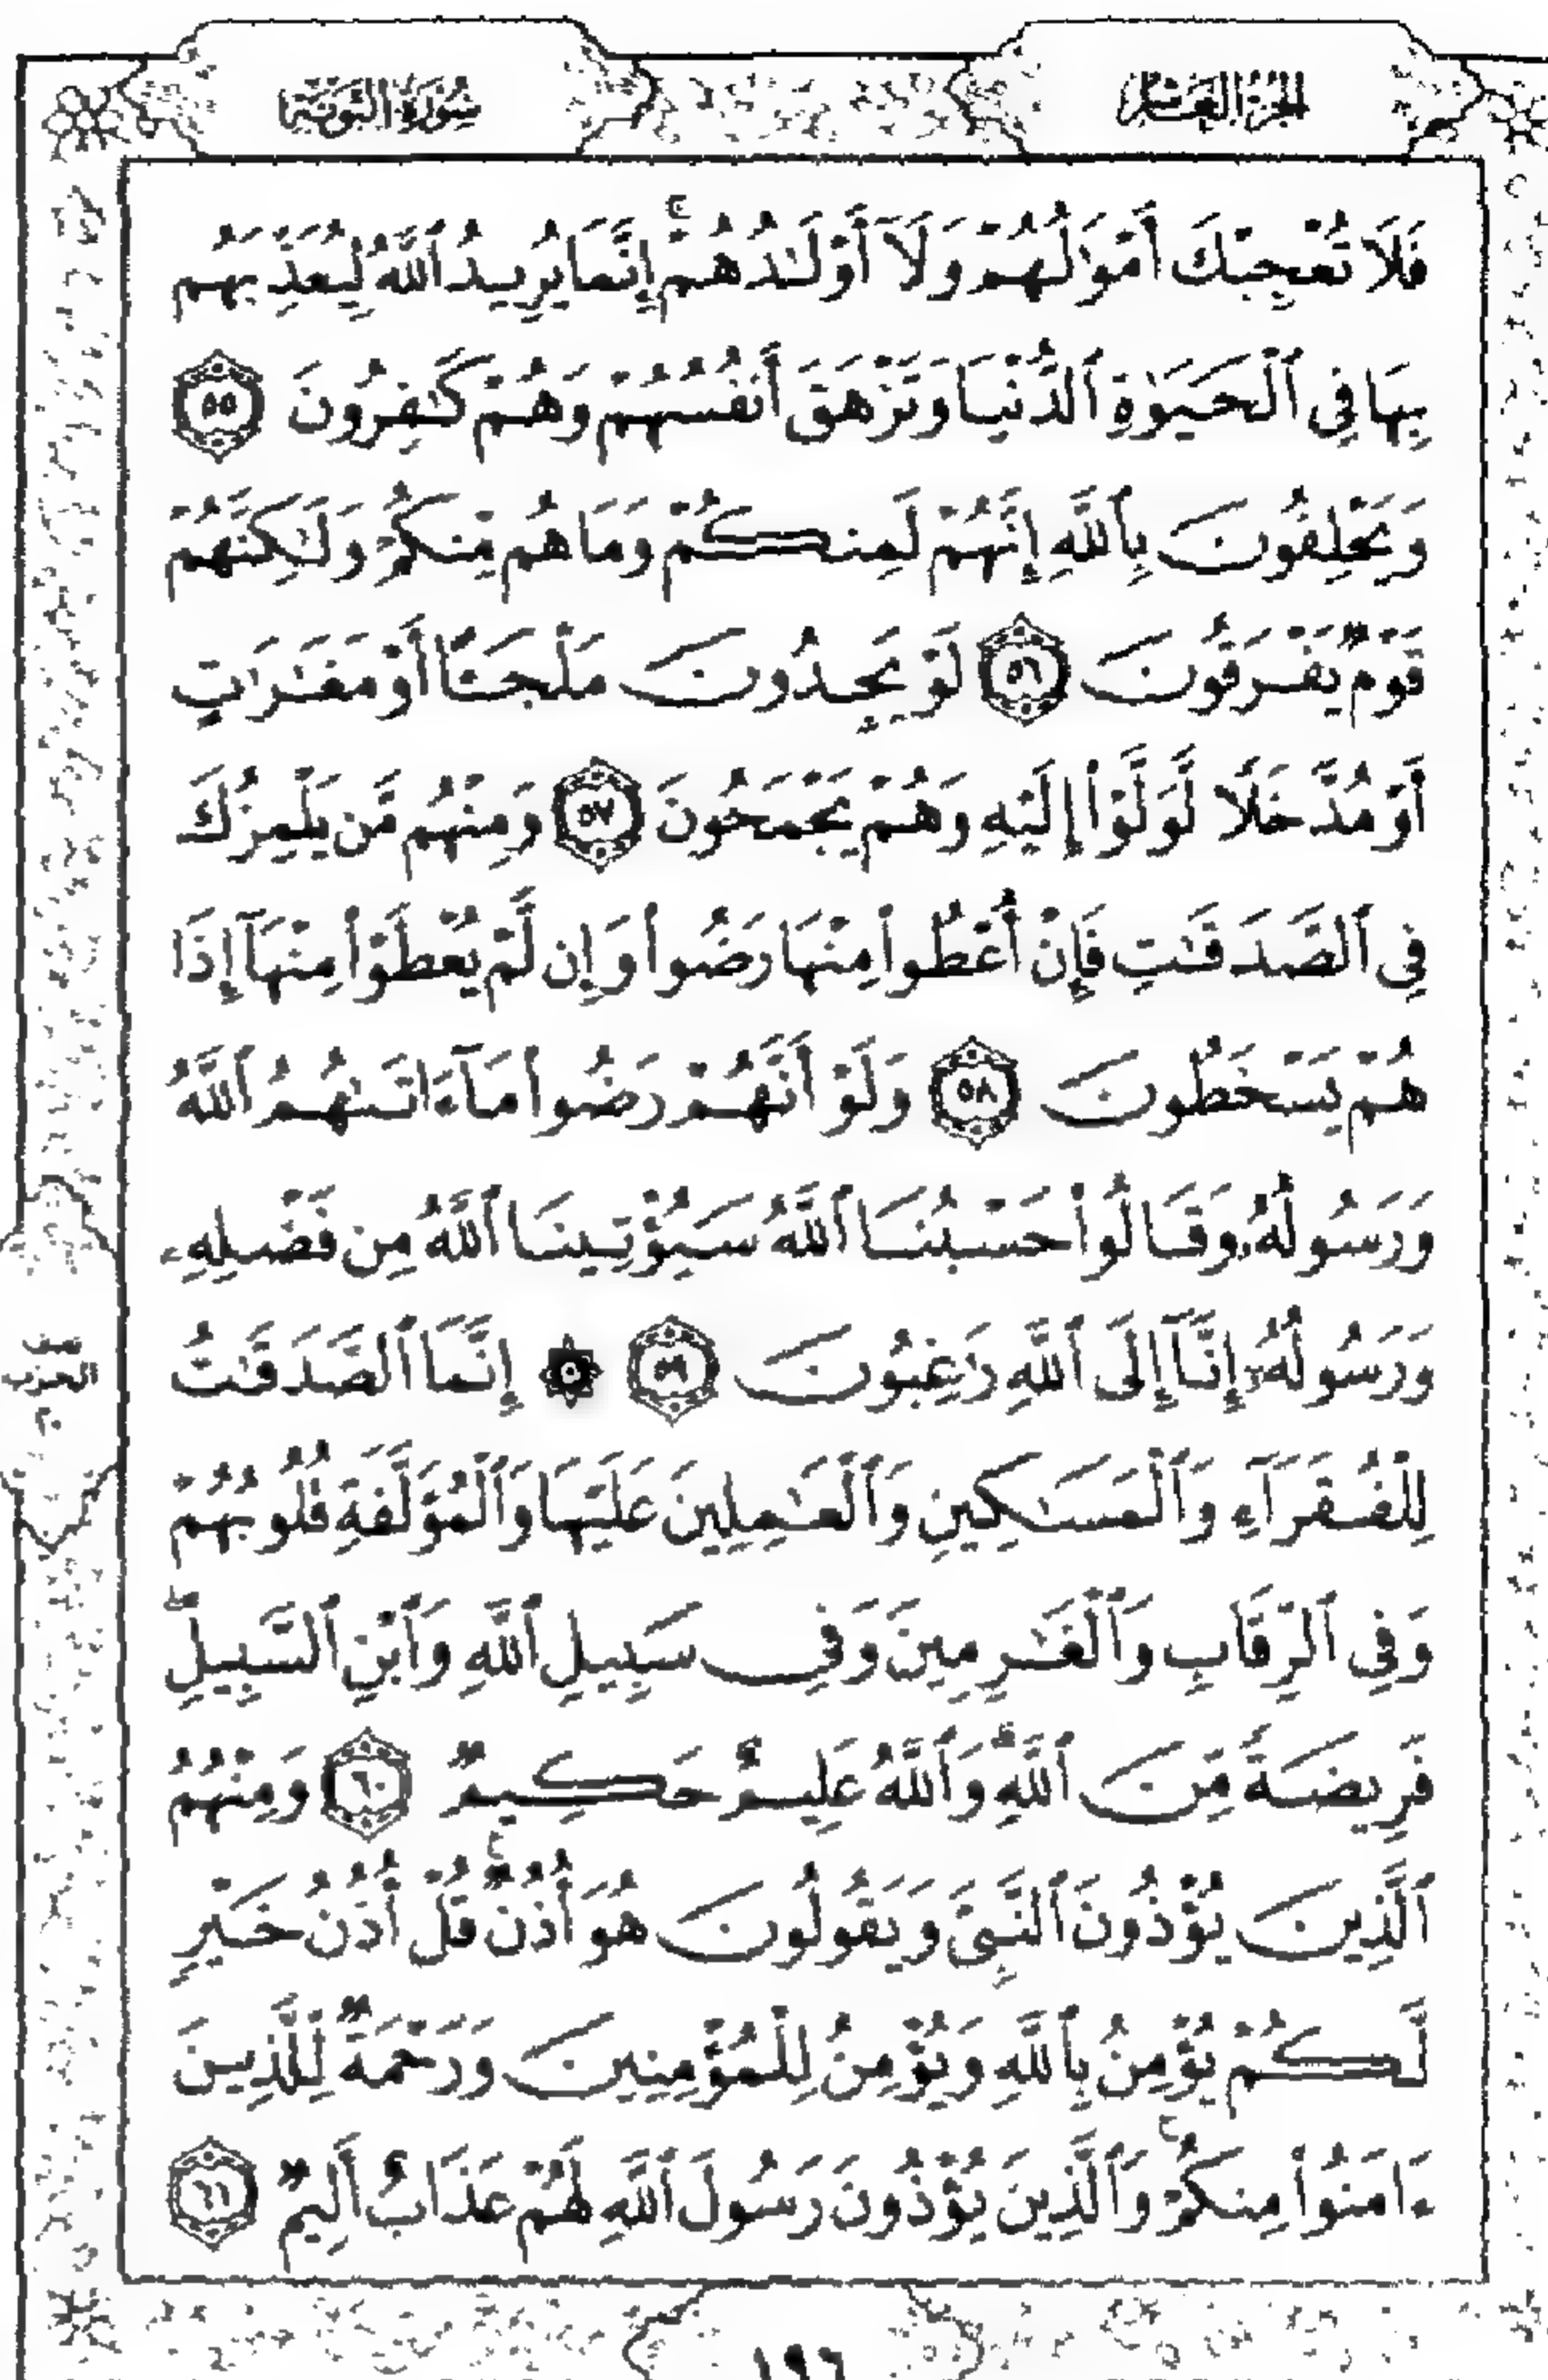 الجزء العاشر
سورة التوبة
فَلَا تُعْجِبْكَ أَمْوَٰلُهُمْ وَلَآ أَوْلَـٰدُهُمْ ۚ إِنَّمَا يُرِيدُ ٱللَّهُ لِيُعَذِّبَهُم
بِهَا فِى ٱلْحَيَوٰةِ ٱلدُّنْيَا وَتَزْهَقَ أَنفُسُهُمْ وَهُمْ كَـٰفِرُونَ ٥٥
وَيَحْلِفُونَ بِٱللَّهِ إِنَّهُمْ لَمِنكُمْ وَمَا هُم مِّنكُمْ وَلَـٰكِنَّهُمْ
قَوْمٌ يَفْرَقُونَ ٥٦ لَوْ يَجِدُونَ مَلْجَـًٔا أَوْ مَغَـٰرَٰتٍ
أَوْ مُدَّخَلًا لَّوَلَّوْا۟ إِلَيْهِ وَهُمْ يَجْمَحُونَ ٥٧ وَمِنْهُم مَّن يَلْمِزُكَ
فِى ٱلصَّدَقَـٰتِ فَإِنْ أُعْطُوا۟ مِنْهَا رَضُوا۟ وَإِن لَّمْ يُعْطَوْا۟ مِنْهَآ إِذَا
هُمْ يَسْخَطُونَ ٥٨ وَلَوْ أَنَّهُمْ رَضُوا۟ مَآ ءَاتَىٰهُمُ ٱللَّهُ
وَرَسُولُهُۥ وَقَالُوا۟ حَسْبُنَا ٱللَّهُ سَيُؤْتِينَا ٱللَّهُ مِن فَضْلِهِۦ
وَرَسُولُهُۥٓ إِنَّآ إِلَى ٱللَّهِ رَٰغِبُونَ ٥٩ ۞ إِنَّمَا ٱلصَّدَقَـٰتُ
نصف
الحزب
٢٠
لِلْفُقَرَآءِ وَٱلْمَسَـٰكِينِ وَٱلْعَـٰمِلِينَ عَلَيْهَا وَٱلْمُؤَلَّفَةِ قُلُوبُهُمْ
وَفِى ٱلرِّقَابِ وَٱلْغَـٰرِمِينَ وَفِى سَبِيلِ ٱللَّهِ وَٱبْنِ ٱلسَّبِيلِ ۖ
فَرِيضَةً مِّنَ ٱللَّهِ ۗ وَٱللَّهُ عَلِيمٌ حَكِيمٌ ٦٠ وَمِنْهُمُ
ٱلَّذِينَ يُؤْذُونَ ٱلنَّبِىَّ وَيَقُولُونَ هُوَ أُذُنٌ ۚ قُلْ أُذُنُ خَيْرٍ
لَّكُمْ يُؤْمِنُ بِٱللَّهِ وَيُؤْمِنُ لِلْمُؤْمِنِينَ وَرَحْمَةٌ لِّلَّذِينَ
ءَامَنُوا۟ مِنكُمْ ۚ وَٱلَّذِينَ يُؤْذُونَ رَسُولَ ٱللَّهِ لَهُمْ عَذَابٌ أَلِيمٌ ٦١
١٩٦